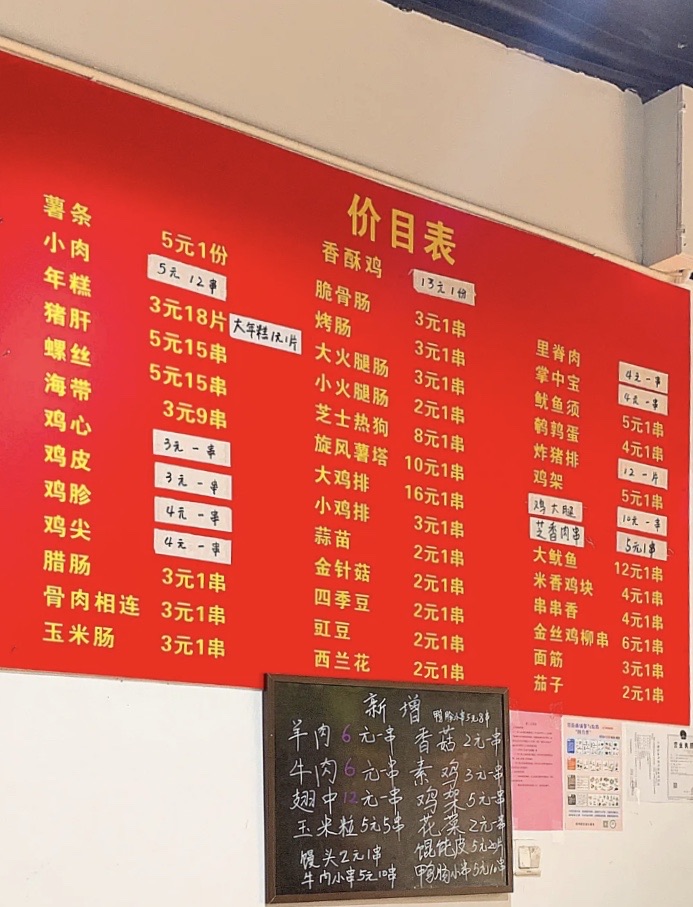 价目表
薯条 5元1份
小肉 5元12串
年糕 3元18片 大年糕1元1片
猪肝 5元15串
螺丝 5元15串
海带 3元9串
鸡心 3元一串
鸡皮 3元一串
鸡胗 4元一串
鸡尖 4元一串
腊肠 3元1串
骨肉相连 3元1串
玉米肠 3元1串
香酥鸡 13元1份
脆骨肠 3元1串
烤肠 3元1串
大火腿肠 3元1串
小火腿肠 2元1串
芝士热狗 8元1串
旋风薯塔 10元1串
大鸡排 16元1串
小鸡排 3元1串
蒜苗 2元1串
金针菇 2元1串
四季豆 2元1串
豇豆 2元1串
西兰花 2元1串
里脊肉 4元一串
掌中宝 4元一串
鱿鱼须 5元1串
鹌鹑蛋 4元1串
炸猪排 12一片
鸡架 5元1串
鸡大腿 10元一串
芝香肉串 5元1串
大鱿鱼 12元1串
米香鸡块 4元1串
串串香 4元1串
金丝鸡柳串 6元1串
面筋 3元1串
茄子 2元1串
新增 鸭胗小串5元8串
羊肉6元一串 香菇2元一串
牛肉6元一串 素鸡3元一串
翅中12元一串 鸡架5元一串
玉米粒5元5串 花菜2元一串
馒头2元1串 馄饨皮5元20片
牛肉小串5元10串 鸭肠小串5元10串
营业执照